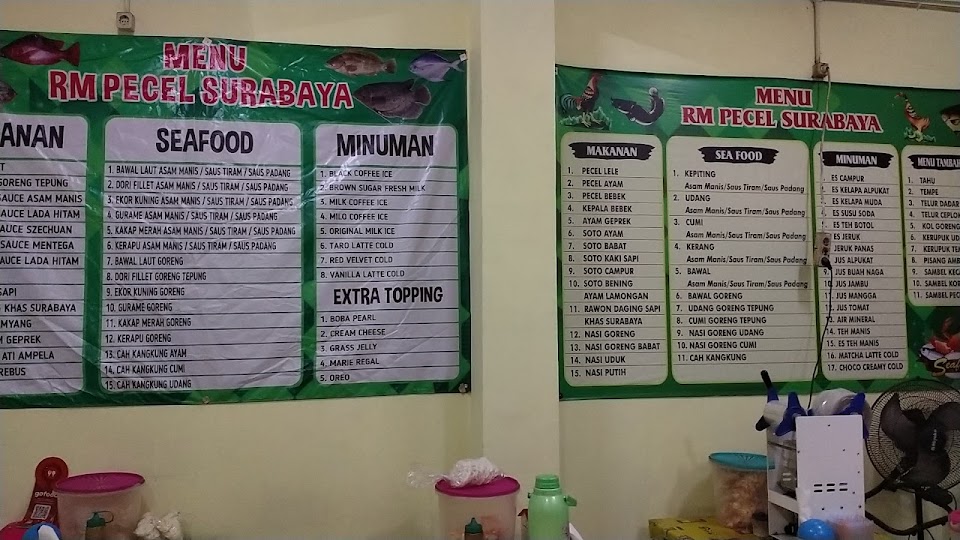 MENU
RM PECEL SURABAYA
ANAN
GORENG TEPUNG
SAUCE ASAM MANIS
SAUCE LADA HITAM
SAUCE SZECHUAN
SAUCE MENTEGA
SAUCE LADA HITAM
SAPI
KHAS SURABAYA
AMYANG
M GEPREK
ATI AMPELA
REBUS
SEAFOOD
1. BAWAL LAUT ASAM MANIS / SAUS TIRAM / SAUS PADANG
2. DORI FILLET ASAM MANIS / SAUS TIRAM / SAUS PADANG
3. EKOR KUNING ASAM MANIS / SAUS TIRAM / SAUS PADANG
4. GURAME ASAM MANIS / SAUS TIRAM / SAUS PADANG
5. KAKAP MERAH ASAM MANIS / SAUS TIRAM / SAUS PADANG
6. KERAPU ASAM MANIS / SAUS TIRAM / SAUS PADANG
7. BAWAL LAUT GORENG
8. DORI FILLET GORENG TEPUNG
9. EKOR KUNING GORENG
10. GURAME GORENG
11. KAKAP MERAH GORENG
12. KERAPU GORENG
13. CAH KANGKUNG AYAM
14. CAH KANGKUNG CUMI
15. CAH KANGKUNG UDANG
MINUMAN
1. BLACK COFFEE ICE
2. BROWN SUGAR FRESH MILK
3. MILK COFFEE ICE
4. MILO COFFEE ICE
5. ORIGINAL MILK ICE
6. TARO LATTE COLD
7. RED VELVET COLD
8. VANILLA LATTE COLD
EXTRA TOPPING
1. BOBA PEARL
2. CREAM CHEESE
3. GRASS JELLY
4. MARIE REGAL
5. OREO
MENU
RM PECEL SURABAYA
MAKANAN
1. PECEL LELE
2. PECEL AYAM
3. PECEL BEBEK
4. KEPALA BEBEK
5. AYAM GEPREK
6. SOTO AYAM
7. SOTO BABAT
8. SOTO KAKI SAPI
9. SOTO CAMPUR
10. SOTO BENING
AYAM LAMONGAN
11. RAWON DAGING SAPI
KHAS SURABAYA
12. NASI GORENG
13. NASI GORENG BABAT
14. NASI UDUK
15. NASI PUTIH
SEA FOOD
1. KEPITING
Asam Manis/Saus Tiram/Saus Padang
2. UDANG
Asam Manis/Saus Tiram/Saus Padang
3. CUMI
Asam Manis/Saus Tiram/Saus Padang
4. KERANG
Asam Manis/Saus Tiram/Saus Padang
5. BAWAL
Asam Manis/Saus Tiram/Saus Padang
6. BAWAL GORENG
7. UDANG GORENG TEPUNG
8. CUMI GORENG TEPUNG
9. NASI GORENG UDANG
10. NASI GORENG CUMI
11. CAH KANGKUNG
MINUMAN
1. ES CAMPUR
2. ES KELAPA ALPUKAT
3. ES KELAPA MUDA
4. ES SUSU SODA
ES TEH BOTOL
ES JERUK
JERUK PANAS
JUS ALPUKAT
9. JUS BUAH NAGA
10. JUS JAMBU
11. JUS MANGGA
12. JUS TOMAT
13. AIR MINERAL
14. TEH MANIS
15. ES TEH MANIS
16. MATCHA LATTE COLD
17. CHOCO CREAMY COLD
MENU TAMBAH
1. TAHU
2. TEMPE
3. TELUR DADAR
4. TELUR CEPLO
5. KOL GORENG
6. KERUPUK UD
7. KERUPUK TE
8. PISANG AMB
9. SAMBEL KEC
10. SAMBEL KO
11. SAMBEL PEC
gofood